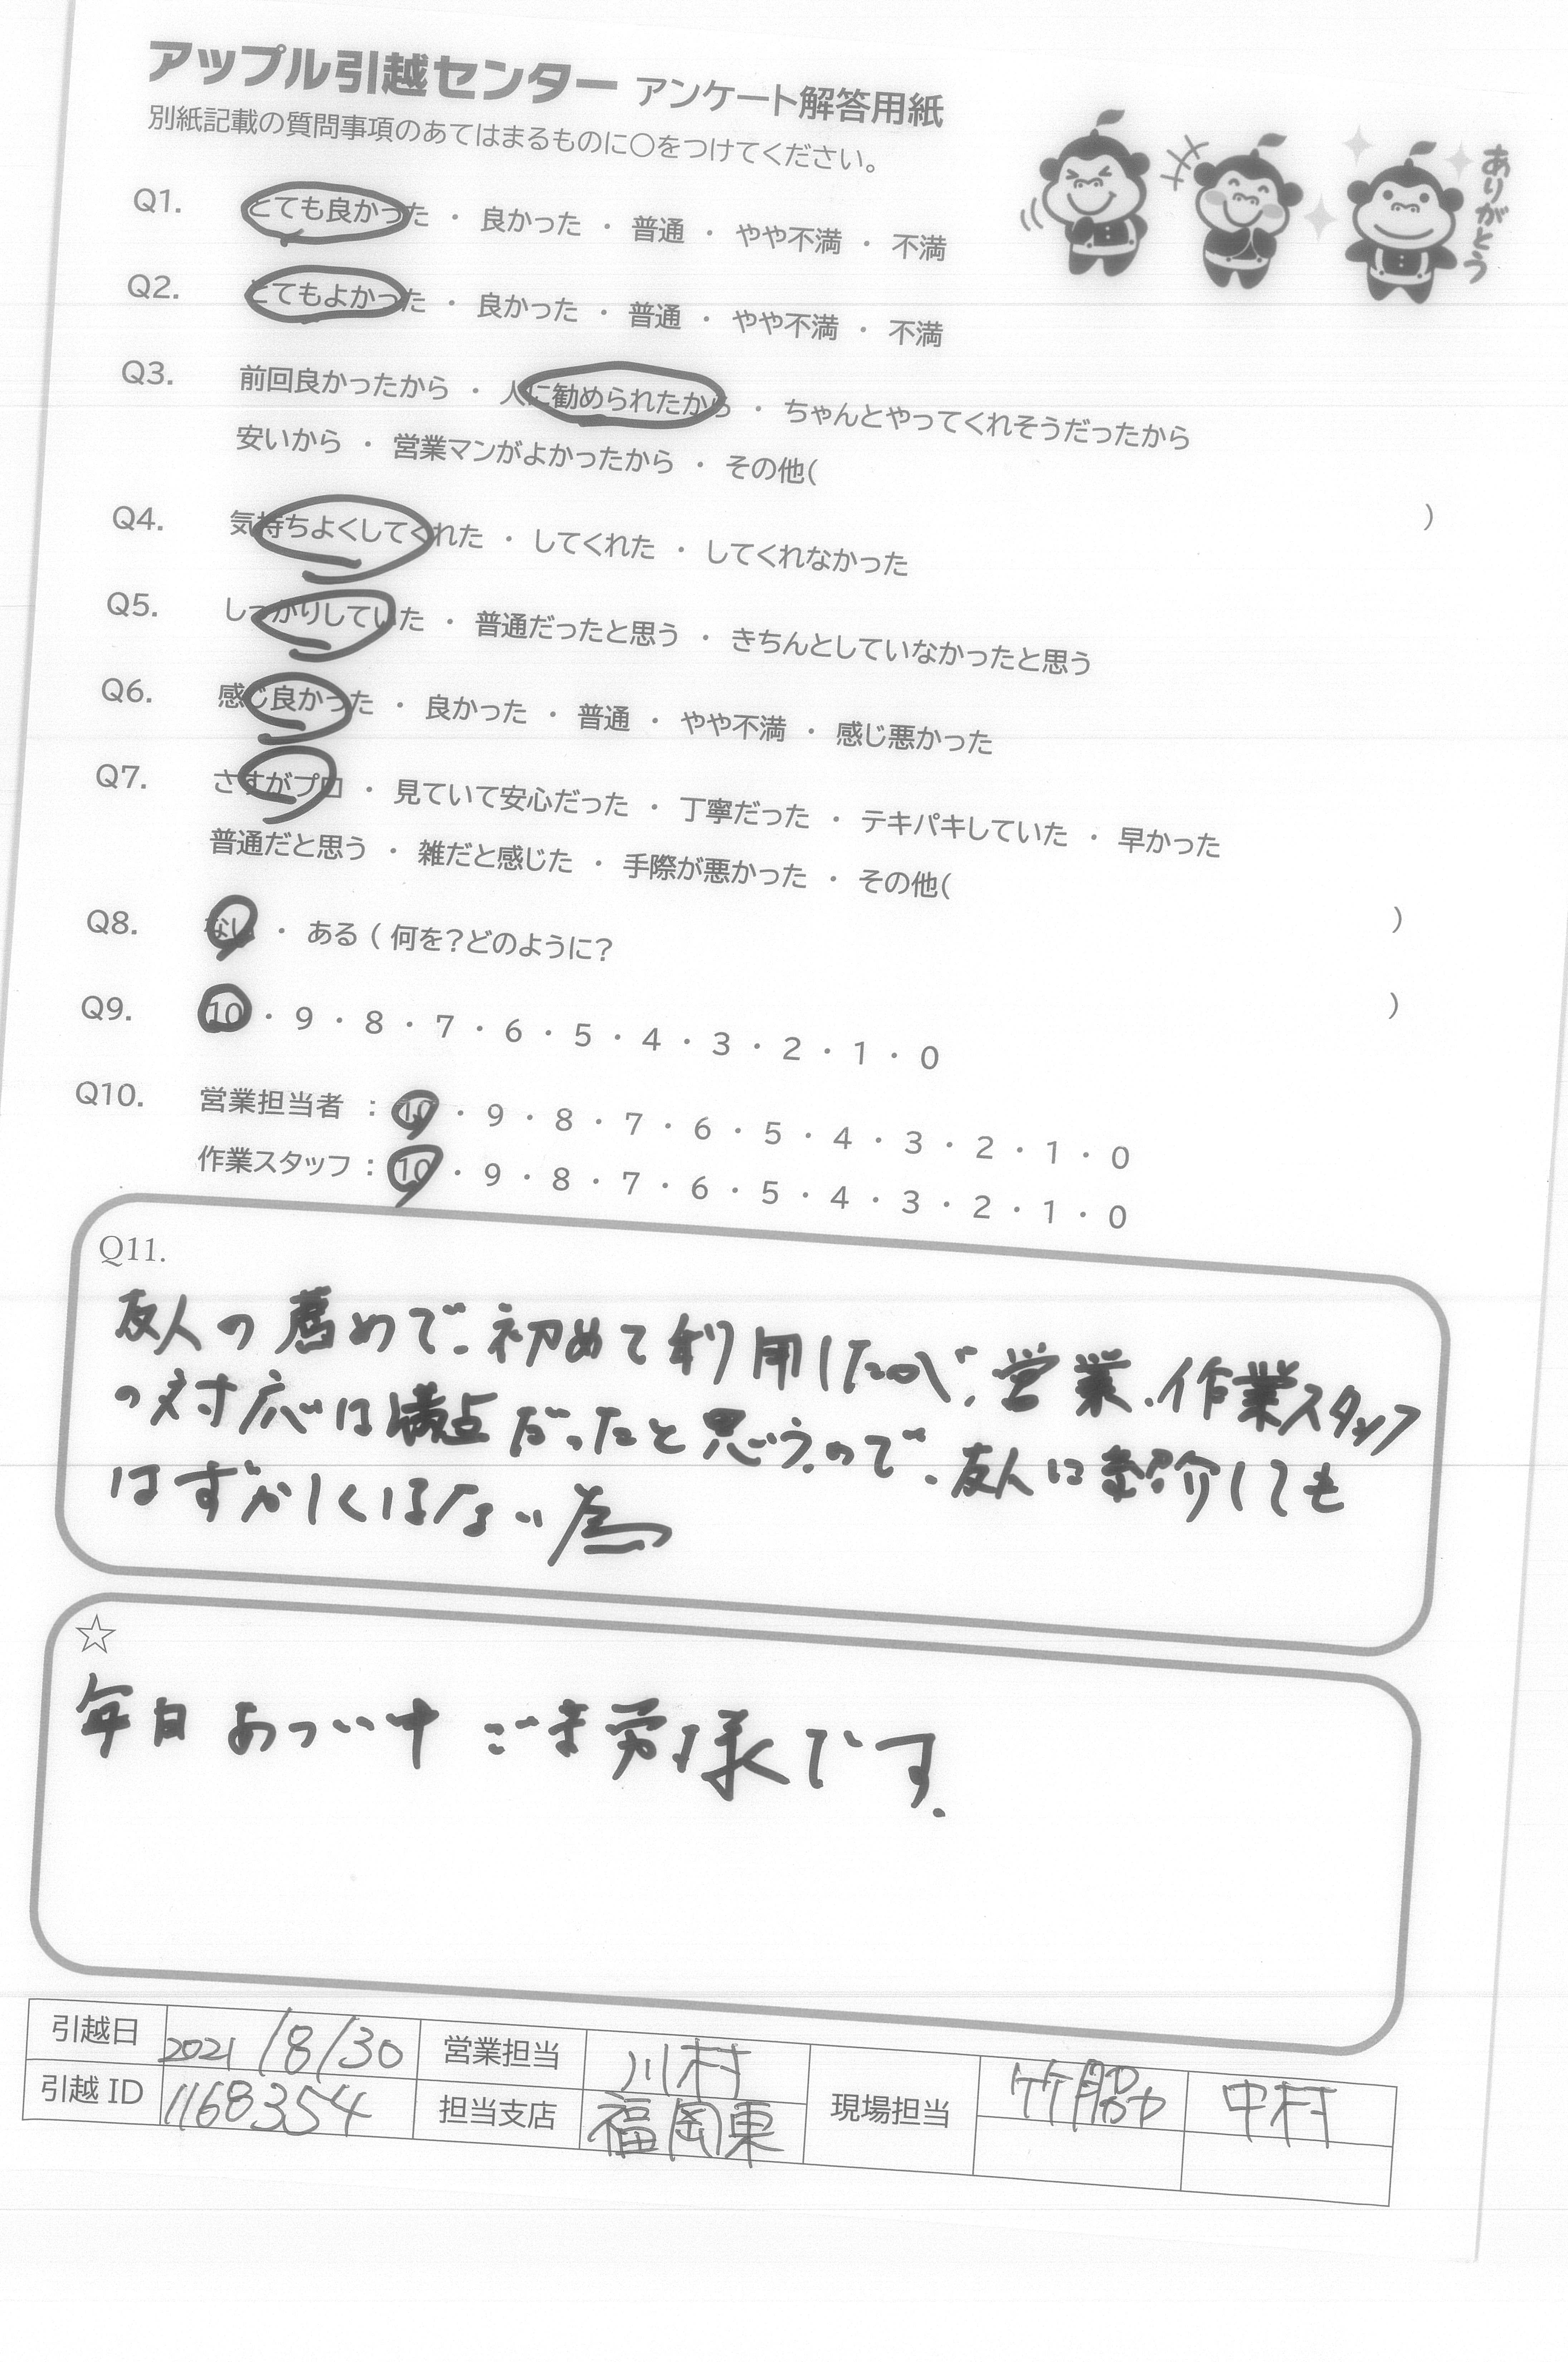 アップル引越センター アンケート解答用紙
別紙記載の質問事項のあてはまるものに○をつけてください。
ありがとう
Q1. とても良かった ・ 良かった ・ 普通 ・ やや不満 ・ 不満
Q2. とてもよかった ・ 良かった ・ 普通 ・ やや不満 ・ 不満
Q3. 前回良かったから ・ 人に勧められたから ・ ちゃんとやってくれそうだったから
安いから ・ 営業マンがよかったから ・ その他( )
Q4. 気持ちよくしてくれた ・ してくれた ・ してくれなかった
Q5. しっかりしていた ・ 普通だったと思う ・ きちんとしていなかったと思う
Q6. 感じ良かった ・ 良かった ・ 普通 ・ やや不満 ・ 感じ悪かった
Q7. さすがプロ ・ 見ていて安心だった ・ 丁寧だった ・ テキパキしていた ・ 早かった
普通だと思う ・ 雑だと感じた ・ 手際が悪かった ・ その他( )
Q8. ない ・ ある ( 何を?どのように? )
Q9. 10 ・ 9 ・ 8 ・ 7 ・ 6 ・ 5 ・ 4 ・ 3 ・ 2 ・ 1 ・ 0
Q10. 営業担当者 : 10 ・ 9 ・ 8 ・ 7 ・ 6 ・ 5 ・ 4 ・ 3 ・ 2 ・ 1 ・ 0
作業スタッフ : 10 ・ 9 ・ 8 ・ 7 ・ 6 ・ 5 ・ 4 ・ 3 ・ 2 ・ 1 ・ 0
Q11.
友人の薦めで、初めて利用したのが、営業、作業スタッフ
の対応は満点だったと思うので、友人に紹介しても
はずかしくはない為
☆
毎日あつい中 ごくろう様です.
引越日 2021/8/30 営業担当 川村 現場担当 竹脇 中村
引越 ID 1168354 担当支店 福岡東